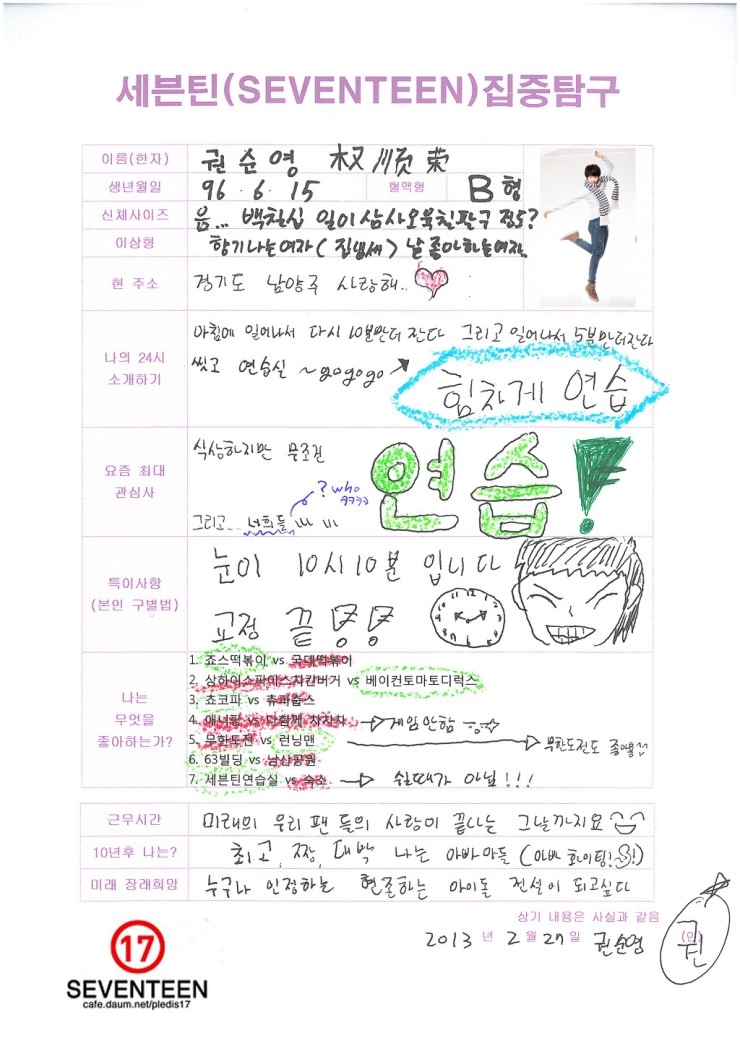 세븐틴(SEVENTEEN)집중탐구
이름(한자) 권순영 权順荣
생년월일 96.6.15 혈액형 B형
신체사이즈 음... 백칠십 일이삼사오육칠팔구 점5?
이상형 향기나는여자(집냄새) 날 좋아하는여자.
현 주소 경기도 남양주 사랑해..
나의 24시 소개하기
아침에 일어나서 다시 10분만더 잔다 그리고 일어나서 5분만더잔다
씻고 연습실 ~gogogo
힘차게 연습
요즘 최대 관심사
식상하지만 무조건
연습!
? who ㅋㅋㅋ
그리고... 너희들
특이사항
(본인 구별법)
눈이 10시 10분 입니다
교정 끝
나는 무엇을 좋아하는가?
1. 죠스떡볶이 vs 국대떡볶이
2. 상하이스파이스치킨버거 vs 베이컨토마토디럭스
3. 쵸코파 vs 츄파춥스
4. 애니팡 vs 다함께 차차차 게임안함
5. 무한도전 vs 런닝맨 무한도전도 좋아해요
6. 63빌딩 vs 남산공원
7. 세븐틴연습실 vs 숙소 쉴때가 아닐!!!
근무시간 미래의 우리 팬 들의 사랑이 끝나는 그날까지요
10년후 나는? 최고, 짱, 대박 나는 아빠아들 (아빠 화이팅!!)
미래 장래희망 누구나 인정하는 현존하는 아이돌 전설이 되고싶다
상기 내용은 사실과 같음
2013 년 2 월 27 일 권순영 (인) 권
17
SEVENTEEN
cafe.daum.net/pledis17